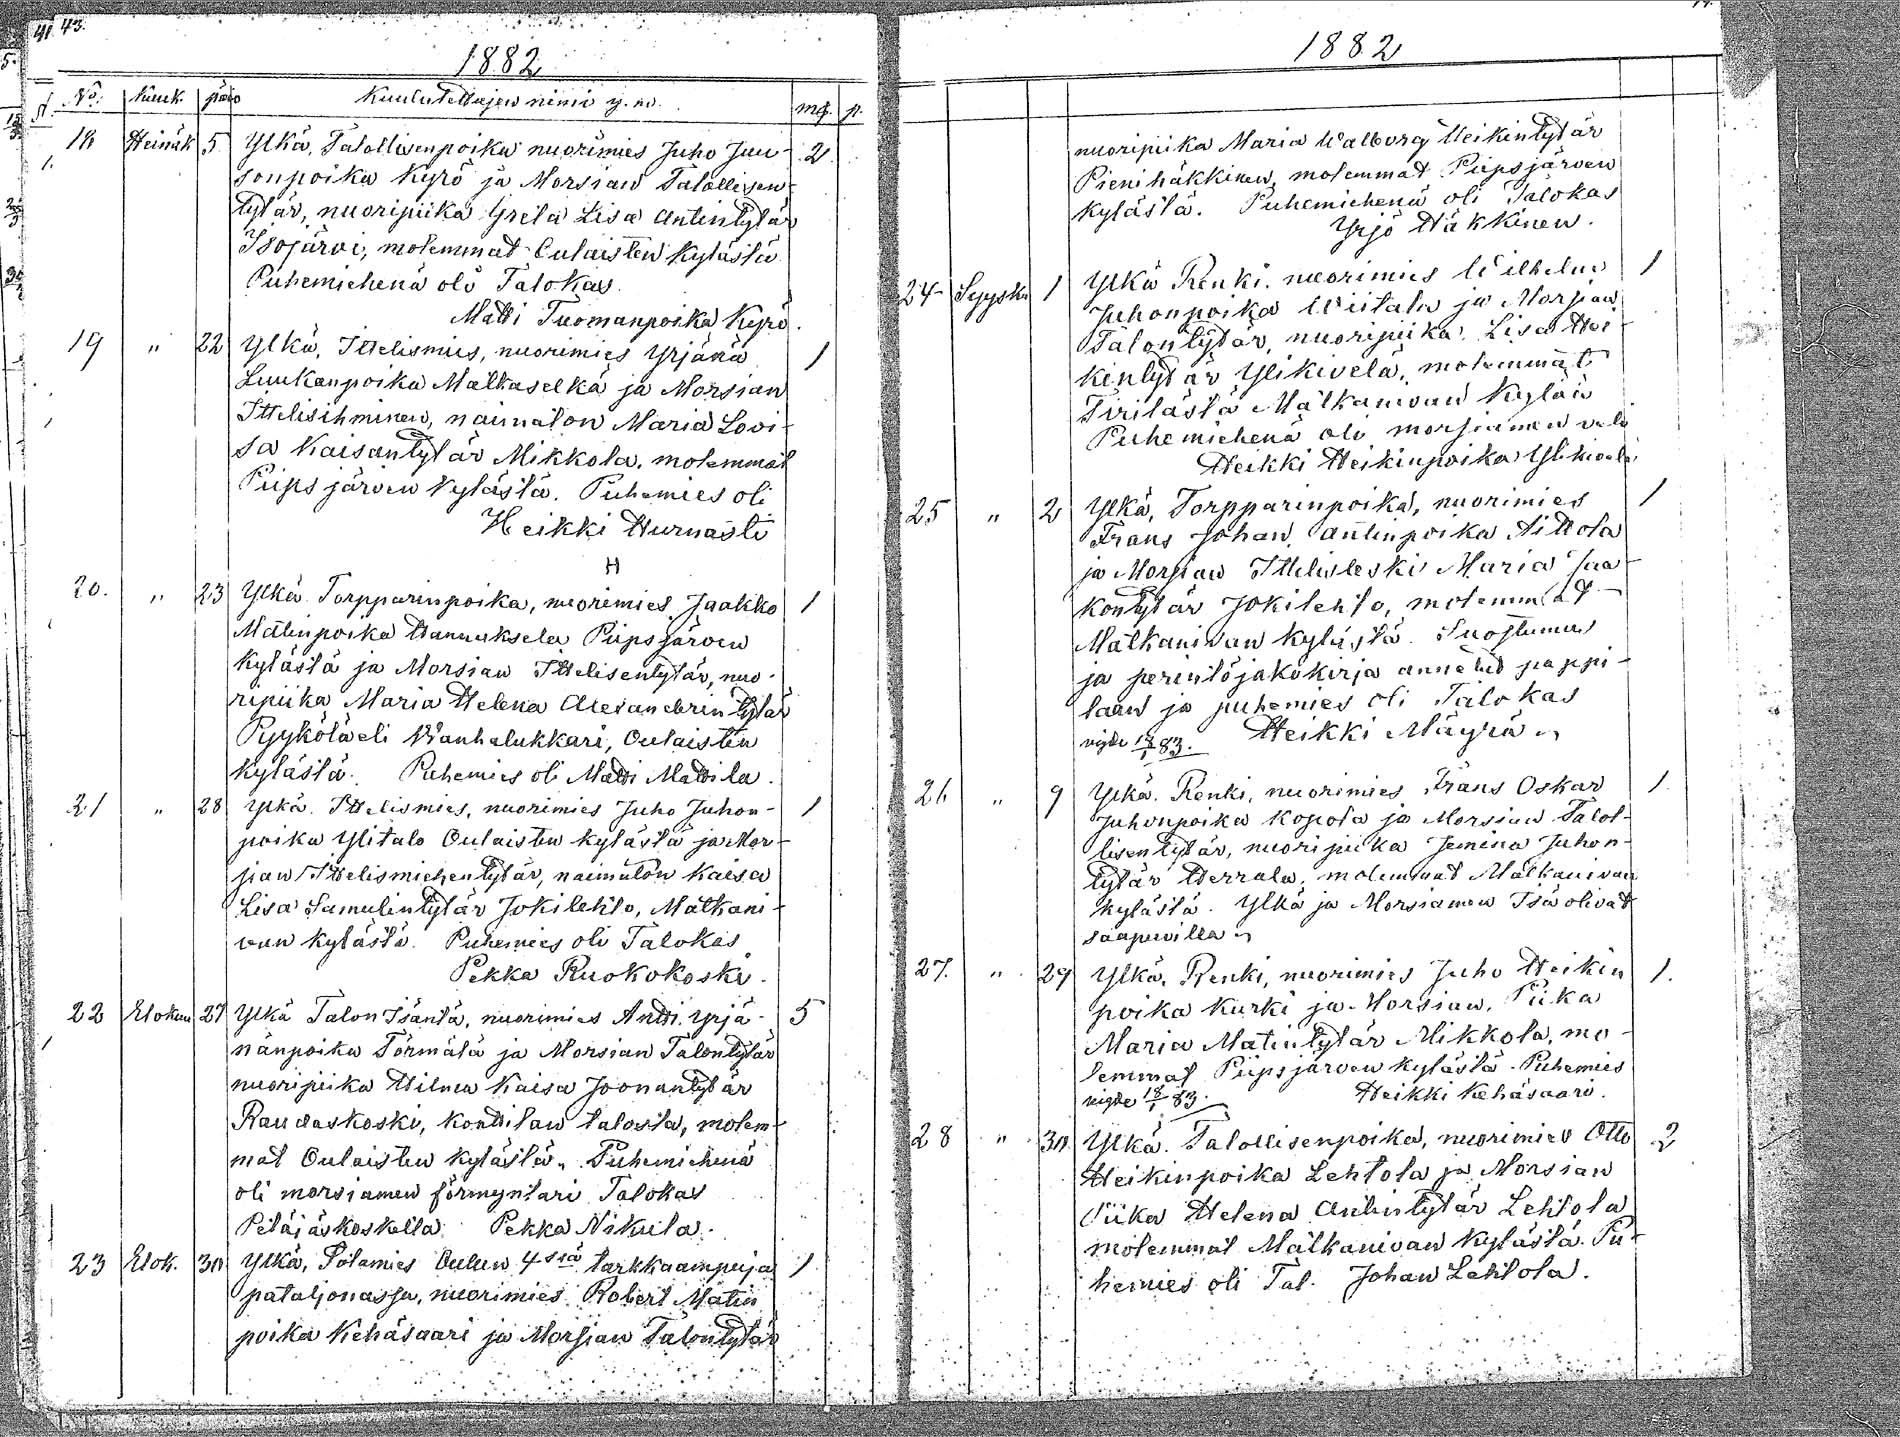 41. 43.
1882
No. Kuuk. päiv Kuulutettujen nimi y. m. mg. p.
18 Heinäk 5 Ylkä, Talollisenpoika nuorimies Juho Juu- 2
sonpoika Kyrö ja Morsian Talollisen-
tytär, nuoripiika Greta Lisa Antintytär
Isojärvi, molemmat Oulaisten kylästä
Puhemiehenä oli Talokas
Matti Tuomanpoika Kyrö.
19 " 22 Ylkä, Ittelismies, nuorimies Yrjänä 1
Luukanpoika Matkaselkä ja Morsian
Ittelisihminen, naimaton Maria Lovi-
sa Kaisantytär Mikkola, molemmat
Piipsjärven kylästä. Puhemies oli
Heikki Hurnasti
H
20. " 23 Ylkä Torpparinpoika, nuorimies Jaakko 1
Matinpoika Hannuksela Piipsjärven
kylästä ja Morsian Ittelisentytär, nuo-
ripiika Maria Helena Alexanderintytär
Pyykölä eli Wanhalukkari, Oulaisten
kylästä. Puhemies oli Matti Mattila.
21 " 28 Ylkä. Ittelismies, nuorimies Juho Juhon- 1
poika Ylitalo Oulaisten kylästä ja Mor-
sian Ittelismiehentytär, naimaton Kaisa
Lisa Samulintytär Jokilehto, Matkani-
van kylästä. Puhemies oli Talokas
Pekka Ruokokoski.
22 Elokuu 27 Ylkä Talon Isäntä, nuorimies Antti Yrjä- 5
nänpoika Törmälä ja Morsian Talontytär
nuoripiika Hilma Kaisa Joonantytär
Raudaskoski, Konttilan talosta, molem-
mat Oulaisten kylästä. Puhemiehenä
oli morsiamen förmyntari Talokas
Petäjäskoskella Pekka Nikula.
23 Elok. 30 Ylkä, Sotamies Oulun 4ssä tarkkaampuja 1
pataljonassa, nuorimies Robert Matin
poika Kehäsaari ja Morsian Talontytär
1882
nuoripiika Maria Walborg Heikintytär
Pienihäkkinen, molemmat Piipsjärven
kylästä. Puhemiehenä oli Talokas
Yrjö Häkkinen.
24 Syysk. 1 Ylkä Renki, nuorimies Wilhelm 1
Juhonpoika Wiitala ja Morsian
Talontytär, nuoripiika Lisa Hei-
kintytär Ylikivelä, molemmat
Tirilästä Matkanivan kylän
Puhemiehenä oli morsiamen veli
Heikki Heikinpoika Ylikivelä
25 " 2 Ylkä, Torpparinpoika, nuorimies 1
Frans Johan Antinpoika Aittola
ja Morsian Ittelisleski Maria Jaa-
kontytär Jokilehto, molemmat
Matkanivan kylästä. Suostumus
ja perintöjakokirja annetut pappi-
laan ja puhemies oli Talokas
vigde 18/1 83. Heikki Mäyrä.
26 " 9 Ylkä. Renki, nuorimies Frans Oskar 1.
Juhonpoika Kopola ja Morsian Talol-
lisentytär, nuoripiika Jemina Juhon-
tytär Herrala, molemmat Matkanivan
kylästä. Ylkä ja Morsiamen Isä olivat
saapuvilla.
27. " 29 Ylkä. Renki, nuorimies Juho Heikin 1.
poika Kurki ja Morsian, Piika
Maria Matintytär Mikkola, mo-
lemmat Piipsjärven kylästä. Puhemies
vigde 18/1 83. Heikki Kehäsaari.
28 " 30 Ylkä. Talollisenpoika, nuorimies Otto 2
Heikinpoika Lehtola ja Morsian
Piika Helena Antintytär Lehtola
molemmat Matkanivan kylästä. Pu-
hemies oli Tal. Johan Lehtola.